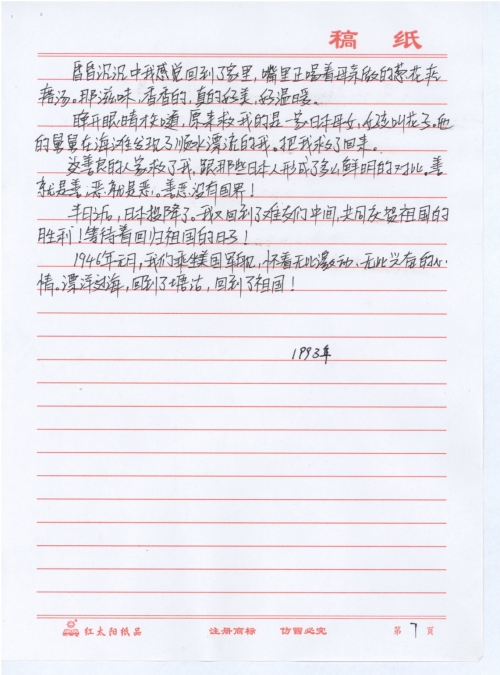 稿 纸
昏昏沉沉中我感觉回到了家里，嘴里正喝着母亲做的葱花疙
瘩汤。那滋味，香香的，真的好美，好温暖。
睁开眼睛才知道，原来救我的是一家日本母女，女孩叫花子。她
的舅舅在海滩发现了顺水漂流的我。把我救了回来。
这善良的人家救了我，跟那些日本人形成了多么鲜明的对比。善
就是善，恶就是恶。善恶没有国界！
半月后，日本投降了。我又回到了难友们中间，共同庆贺祖国的
胜利！等待着回归祖国的日子！
1946年元月，我们乘坐美国军舰，怀着无比激动，无比兴奋的心
情。漂洋过海，回到了塘沽，回到了祖国！
1993年
红太阳纸品 注册商标 仿冒必究 第 7 页